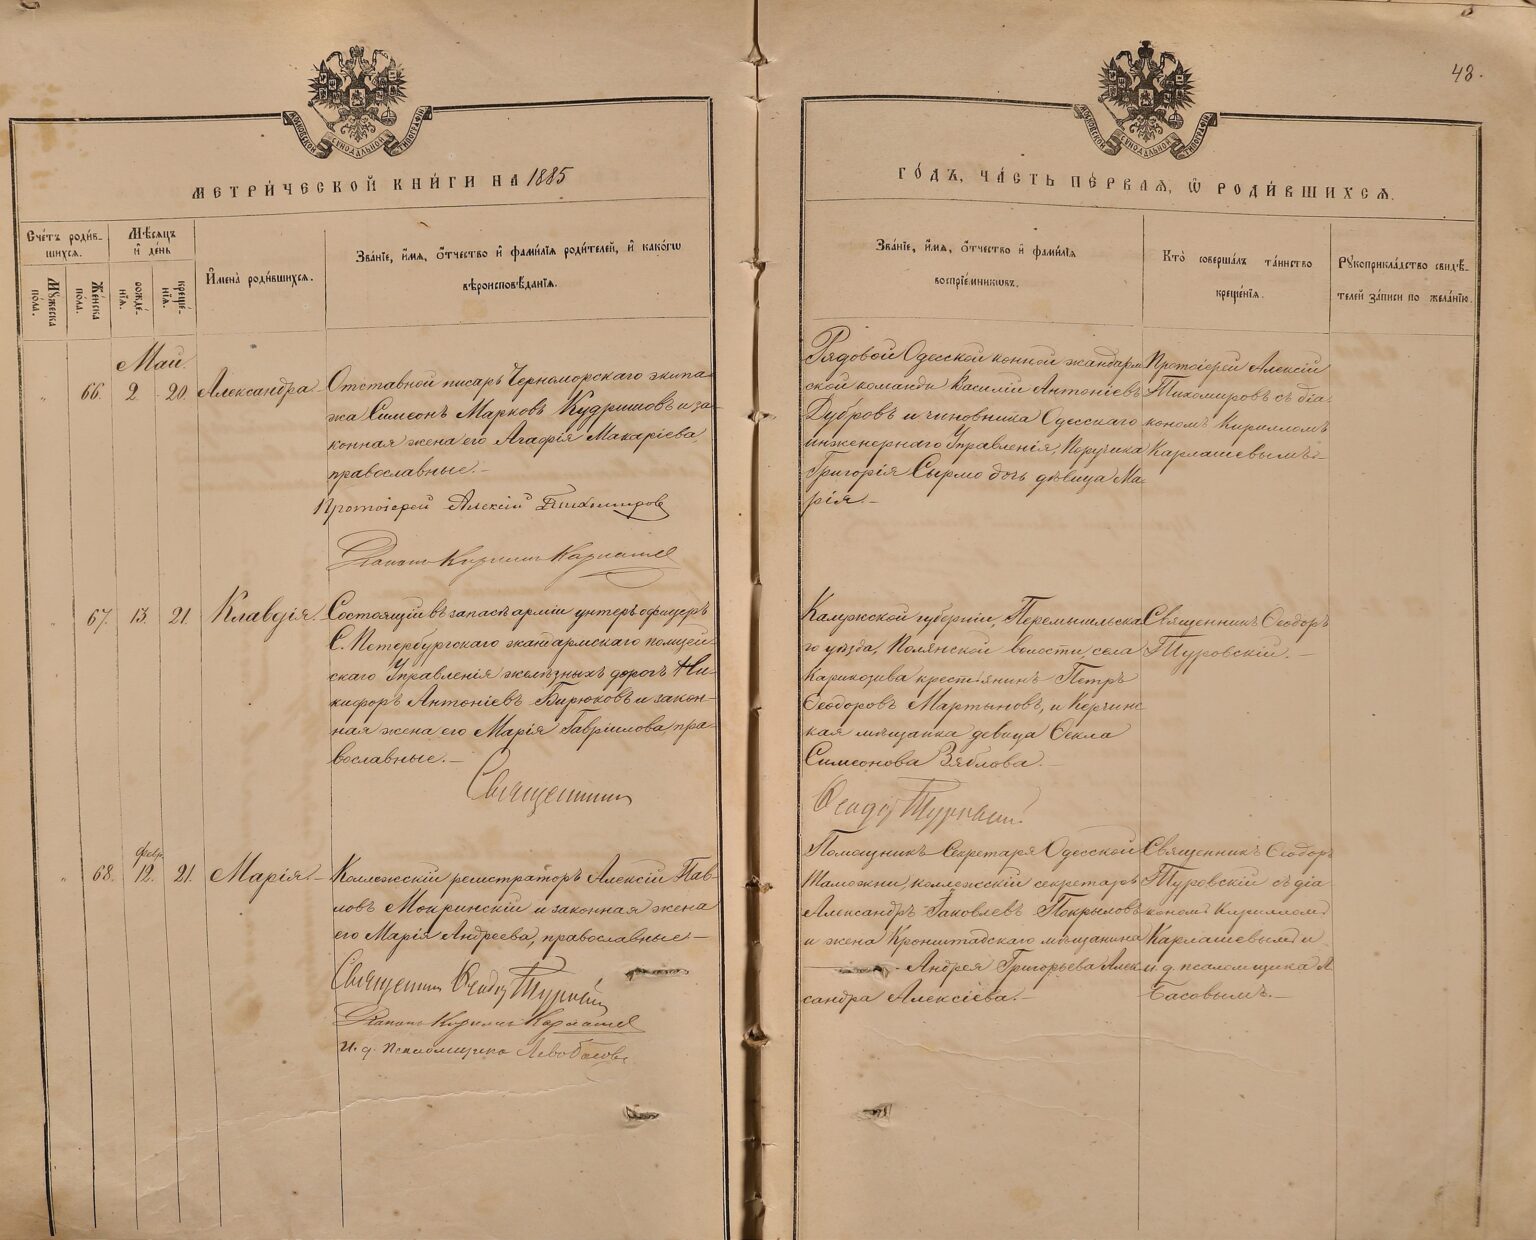 43.
МОСКОВСКОЙ СѴНОДАЛЬНОЙ ТИПОГРАФІИ
МОСКОВСКОЙ СѴНОДАЛЬНОЙ ТИПОГРАФІИ
МЕТРИ́ЧЕСКОЙ КНИ́ГИ НА 1885
ГО́ДЪ, ЧА́СТЬ ПЕ́РВАЯ, Ѽ РОДИ́ВШИХСЯ.
Сче́тъ роди́в-
шихся.
Му́жеска по́ла.
Же́нска по́ла.
Мѣ́сяцъ и҆ де́нь
рожде́-
нїя.
креще́-
нїя.
И҆мена̀ роди́вшихся.
Зва́нїе, и҆́мя, ѻ҆́тчество и҆ фами́лїя роди́телей, и҆ како́гѡ
вѣроисповѣ́данїя.
Зва́нїе, и҆́мя, ѻ҆́тчество и҆ фами́лїя
воспрїе́мникѡвъ.
Кто̀ соверша́лъ та́инство
креще́нїя.
Рꙋкоприкла́дство свидѣ́-
телей за́писи по жела́нїю.
Май.
66. 2. 20. Александра
Отставной писарь Черноморскаго экипа-
жа Симеонъ Марковъ Кудришовъ и за-
конная жена его Агафія Макаріева
православные.-
Протоіерей Алексій Тихомировъ
Рядовой Одесской конной жандарм
ской команды Василій Антоніевъ
Дубровъ и чиновника Одесскаго
инженернаго Управленія, Поручика
Григорія Сырмо дочь дѣвица Ма-
рія.-
Протоіерей Алексій
Тихомировъ съ діа-
кономъ Кирилломъ
Карлашевымъ-
67. 13. 21. Клавдія.
Состоящій въ запасѣ арміи унтеръ офицеръ
С. Петербургскаго жандармскаго полицей-
скаго Управленія желѣзныхъ дорогъ Ни-
кифоръ Антоніевъ Бирюковъ и закон-
ная жена его Марія Гавріилова пра-
вославные.-
Священникъ
Калужской губерніи, Перемышльска
го уѣзда, Полянской волости, села
крестьянинъ Петръ
Ѳеодоровъ Мартыновъ, и Керчинс
кая мѣщанка девица Ѳекла
Симеонова Зяблова.-
Ѳеодоръ Туровскій.
Священникъ Ѳеодоръ
Туровскій.-
68. февр. 12. 21. Марія.-
Коллежскій регистраторъ Алексій Пав-
ловъ Мокринскій и законная жена
его Марія Андреева, православные.-
Священникъ Ѳеодоръ Туровскій
И. д. псаломщика
Помощникъ Секретаря Одесской
Таможни, коллежскій секретарь
Александръ Іаковлевъ Покрыловъ
и жена Кронштадскаго мѣщанина
Андрея Григорьева Алек
сандра Алексіева.-
Священникъ Ѳеодоръ
Туровскій съ діа-
кономъ Кирилломъ
Карлашевымъ и
и. д. псаломщика Л
Басовымъ.-